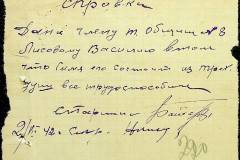 Справка
Дана члену т. Общины №8
Лисовому Василию в том
что семя его состоит из трех
душ все трудоспособны
Старши
2/II 42 г.
290